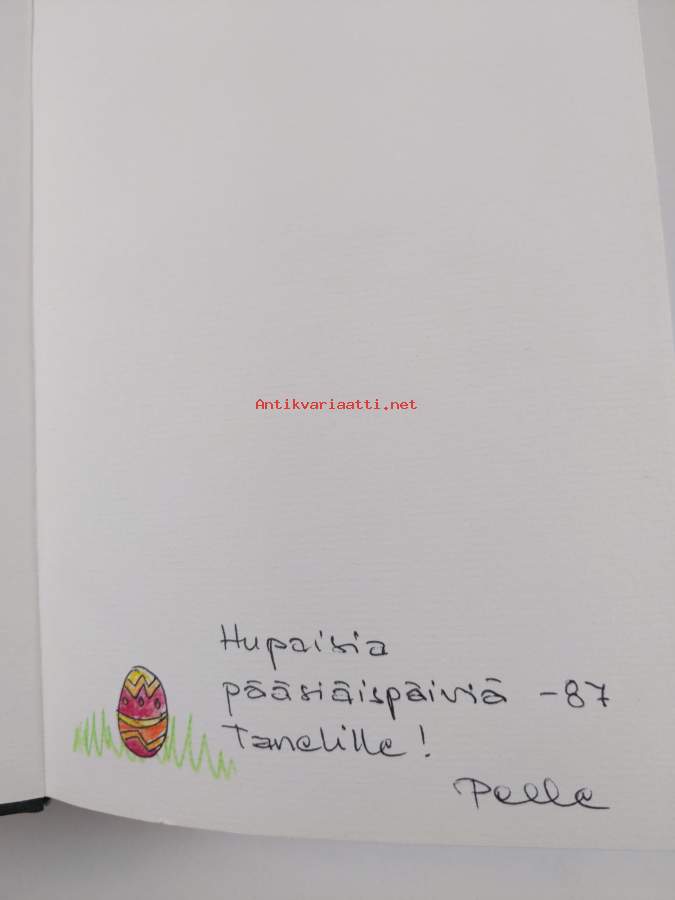 Antikvariaatti.net
Hupaisia
pääsiäispäiviä -87
Tanelille!
Pelle